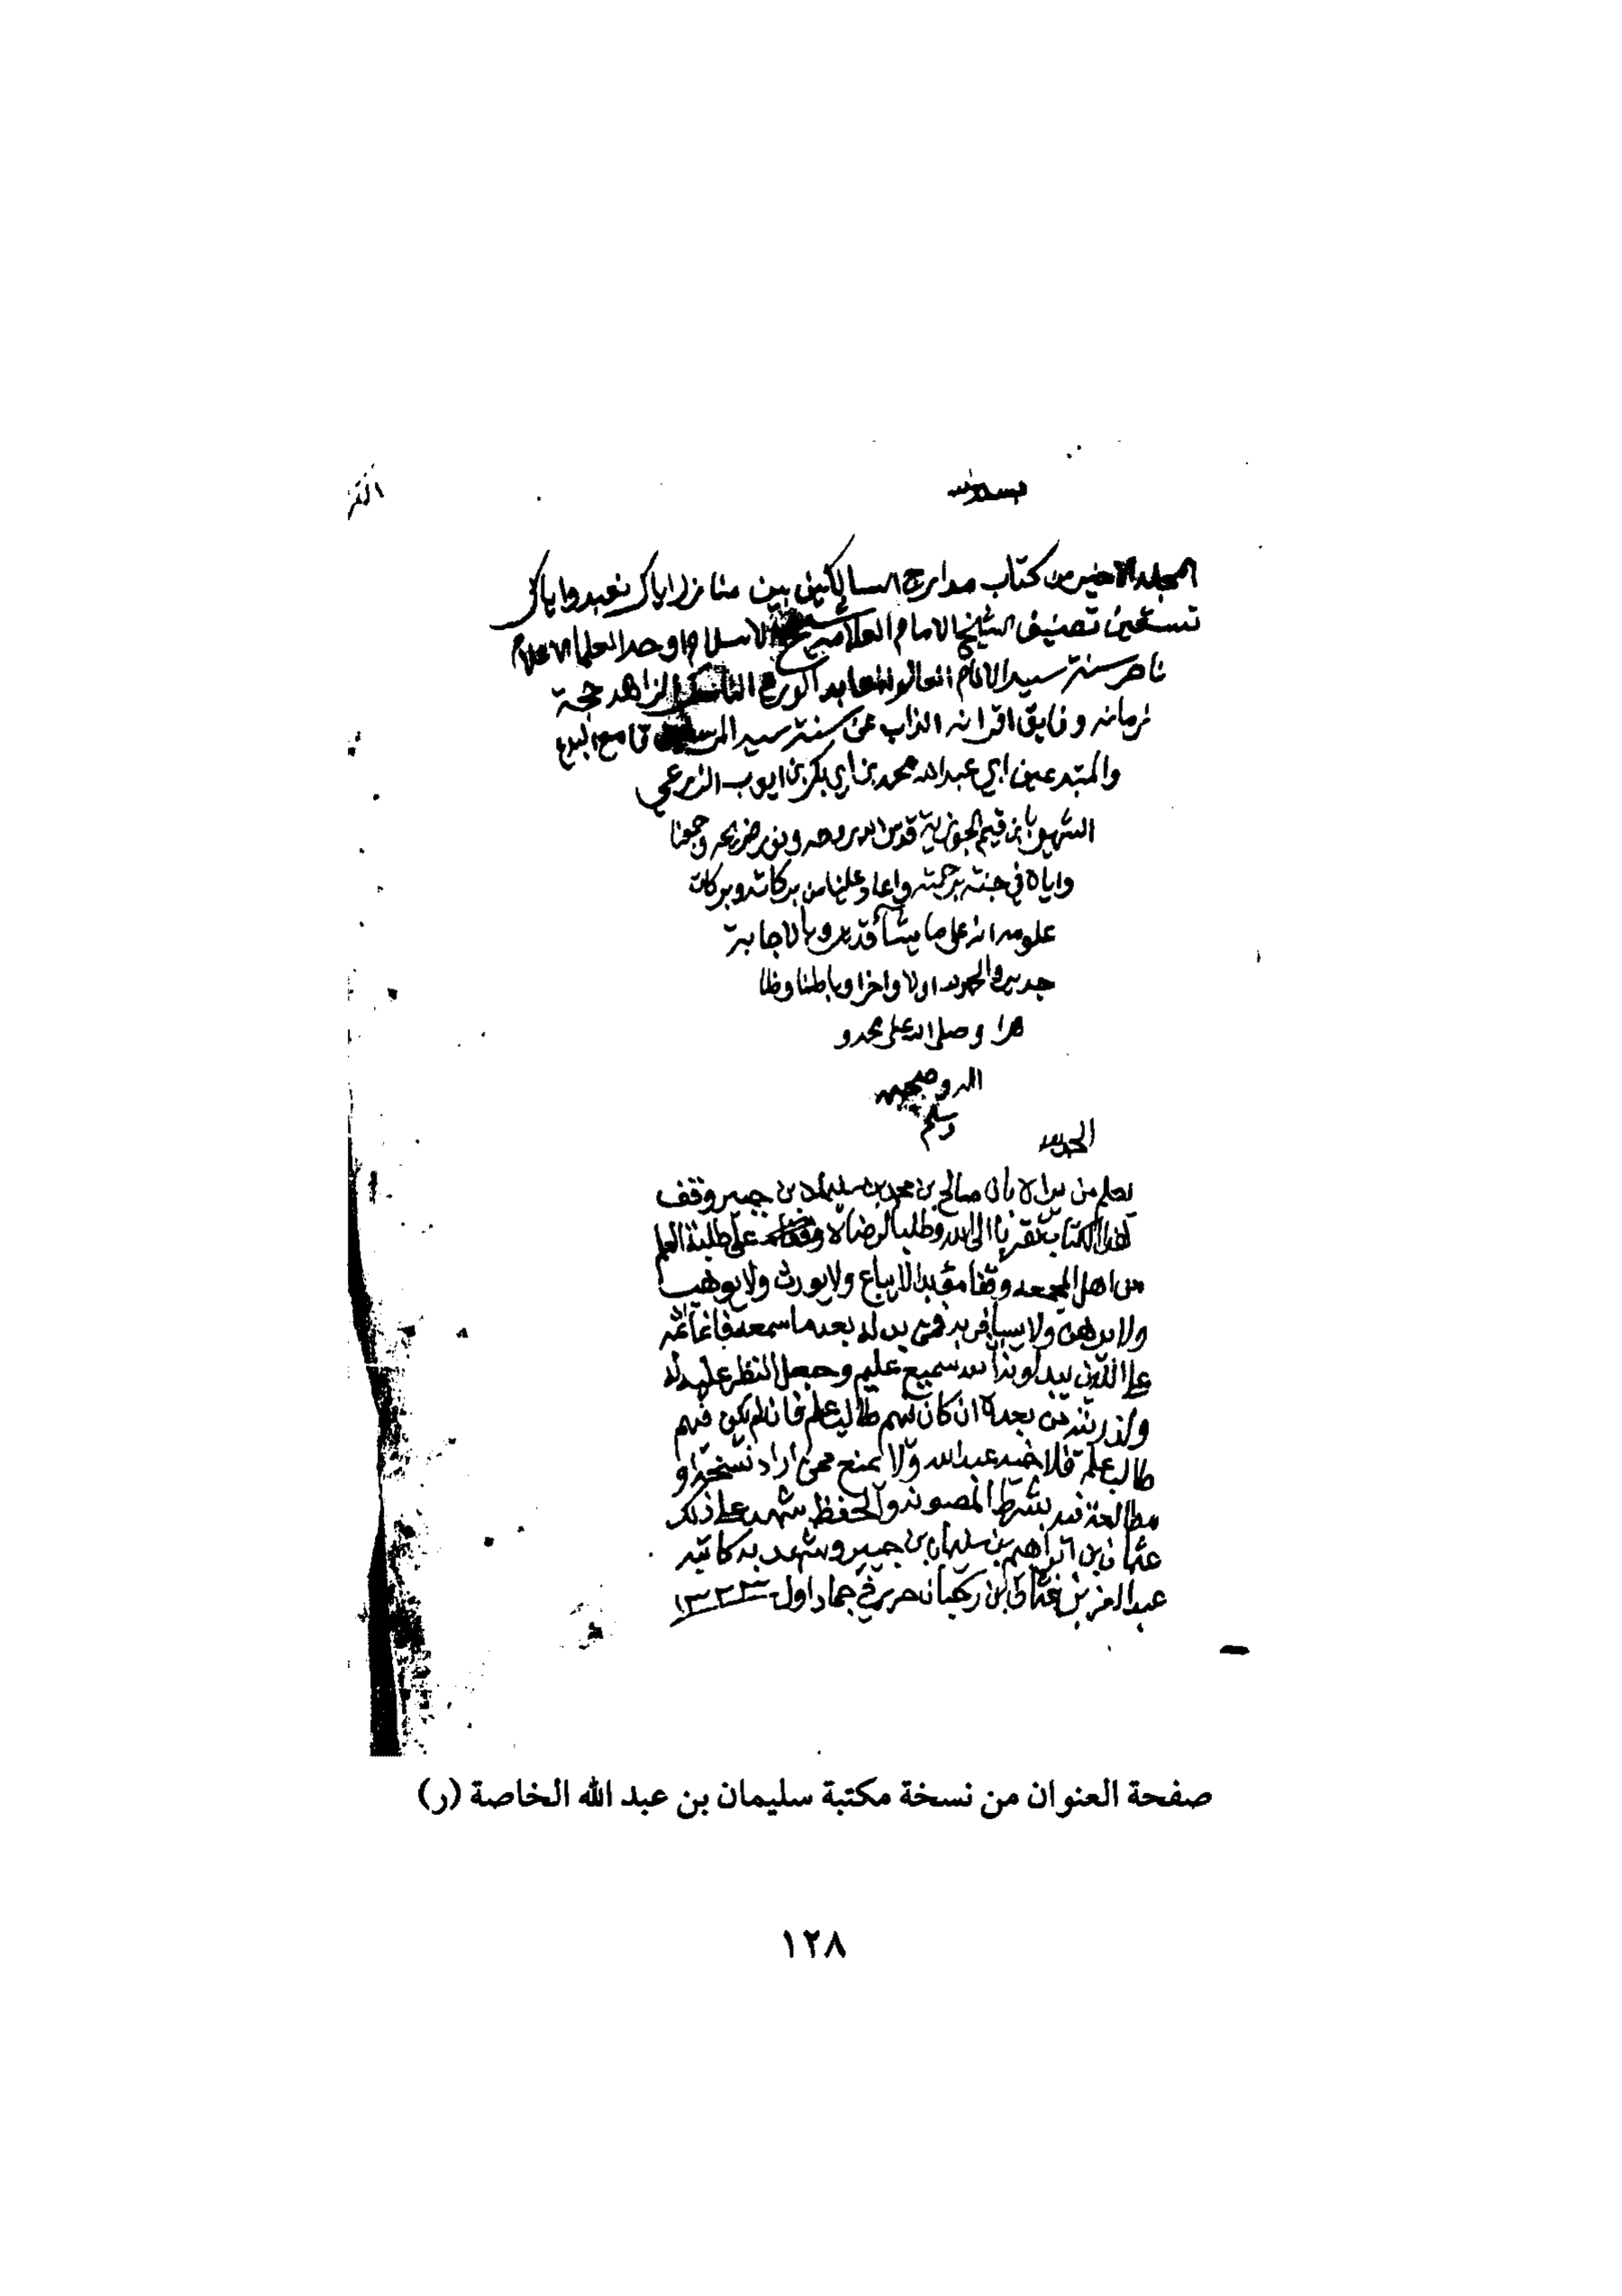 المجلد الاخير من كتاب مدارج السالكين بين منازل اياك نعبد واياك
نستعين تصنيف الشيخ الامام العلامة شيخ الاسلام اوحد العلما الاعلام
ناصر سنة سيد الانام العالم العابد الورع الناسك الزاهد حجة
زمانه وفايق اقرانه الذاب عن سنة سيد المرسلين قامع البدع
والمبتدعين ابي عبدالله محمد بن ابي بكر بن ايوب الزرعي
الشهير بابن قيم الجوزية قدس الله روحه ونور ضريحه وجمعنا
واياه في جنته برحمته واعاد علينا من بركاته وبركات
علومه انه على ما يشأ قدير وبالاجابة
جدير والحمد لله اولا واخرا وباطنا وظا
هرا وصلى الله على محمد و
اله وصحبه
وسلم
الحمد لله
يعلم من يراه بان صالح بن محمد بن سليمان بن جبير وقف
هذا الكتاب تقربا الى الله وطلبا لرضاه على طلبة العلم
من اهل المجمعه وقفا مؤبدا لا يباع ولا يورث ولا يوهب
ولا يرهن ولا يسافر به فمن بدله بعد ما سمعه فانما اثمه
على الذين يبدلونه ان الله سميع عليم وجعل النظر عليه له
ولذريته من بعده ان كان فيهم طالب علم فان لم يكن فيهم
طالب علم فلاخيه عبدالله ولا يمنع ممن اراد نسخه او
مطالعة فيه بشرط الصون والحفظ شهد على ذلك
عثمان بن ابراهيم بن سليمان بن جبير وشهد به كاتبه
عبدالعزيز بن عثمان بن ركبان حرر في جماد اول ١٣٢٣
صفحة العنوان من نسخة مكتبة سليمان بن عبد الله الخاصة (ر)
١٢٨